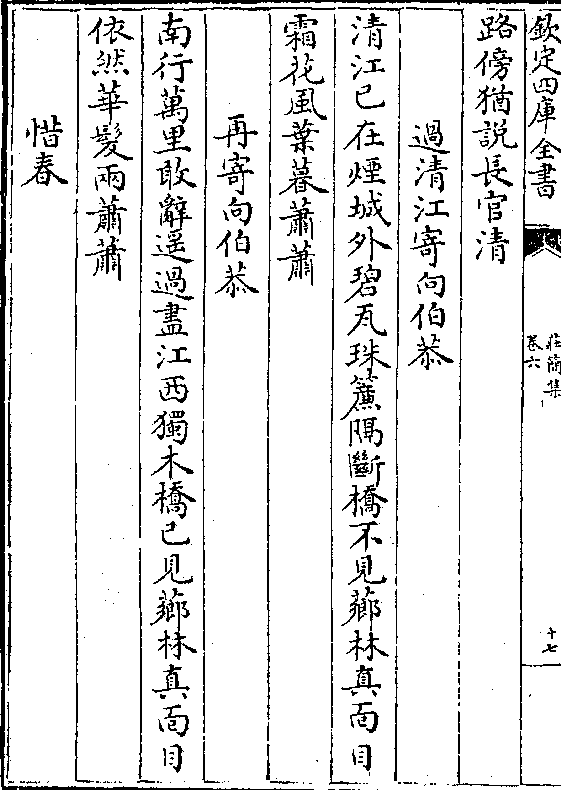 欽定四庫全書
莊簡集
卷六
十七
路傍猶說長官清
過清江寄向伯恭
清江已在煙城外碧瓦珠簾隔斷橋不見薌林真面目
霜花風葉暮蕭蕭
再寄向伯恭
南行萬里敢辭遥過盡江西獨木橋已見薌林真面目
依然華髮兩蕭蕭
惜春